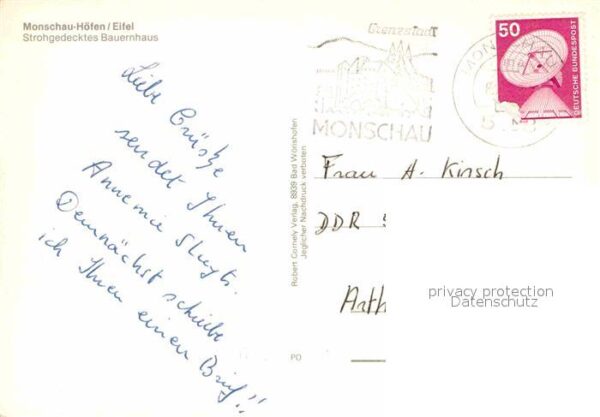 Monschau-Höfen / Eifel
Strohgedecktes Bauernhaus
Liebe Grüße
sendet Ihnen
Annemie Sluyts.
Demnächst schreibe
ich Ihnen einen Brief!!
Robert Cornely Verlag, 8939 Bad Wörishofen
Jeglicher Nachdruck verboten
PD
MONSCHAU
50
DEUTSCHE BUNDESPOST
Frau A. Kirsch
DDR
Arth
privacy protection
Datenschutz